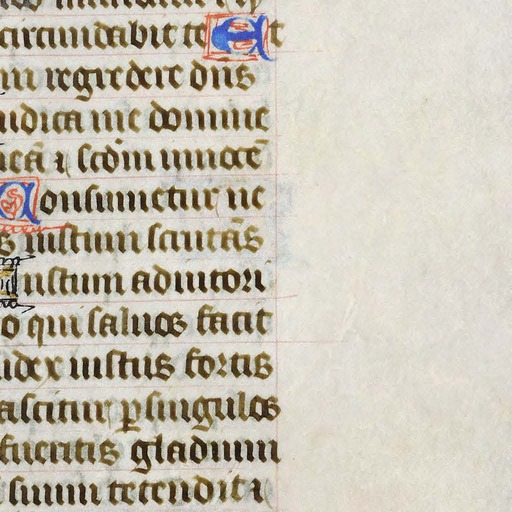 circumdabit te Et
in regredere dn̄s
iudica me domine
meā ⁊ scd̄m innocē
Consumetur ne
s iustum scrutās
Iustum adiutori
o qui saluos facit
iudex iustus fortis
rascitur ꝑ singulos
fueritis gladium
suum tetendit ⁊